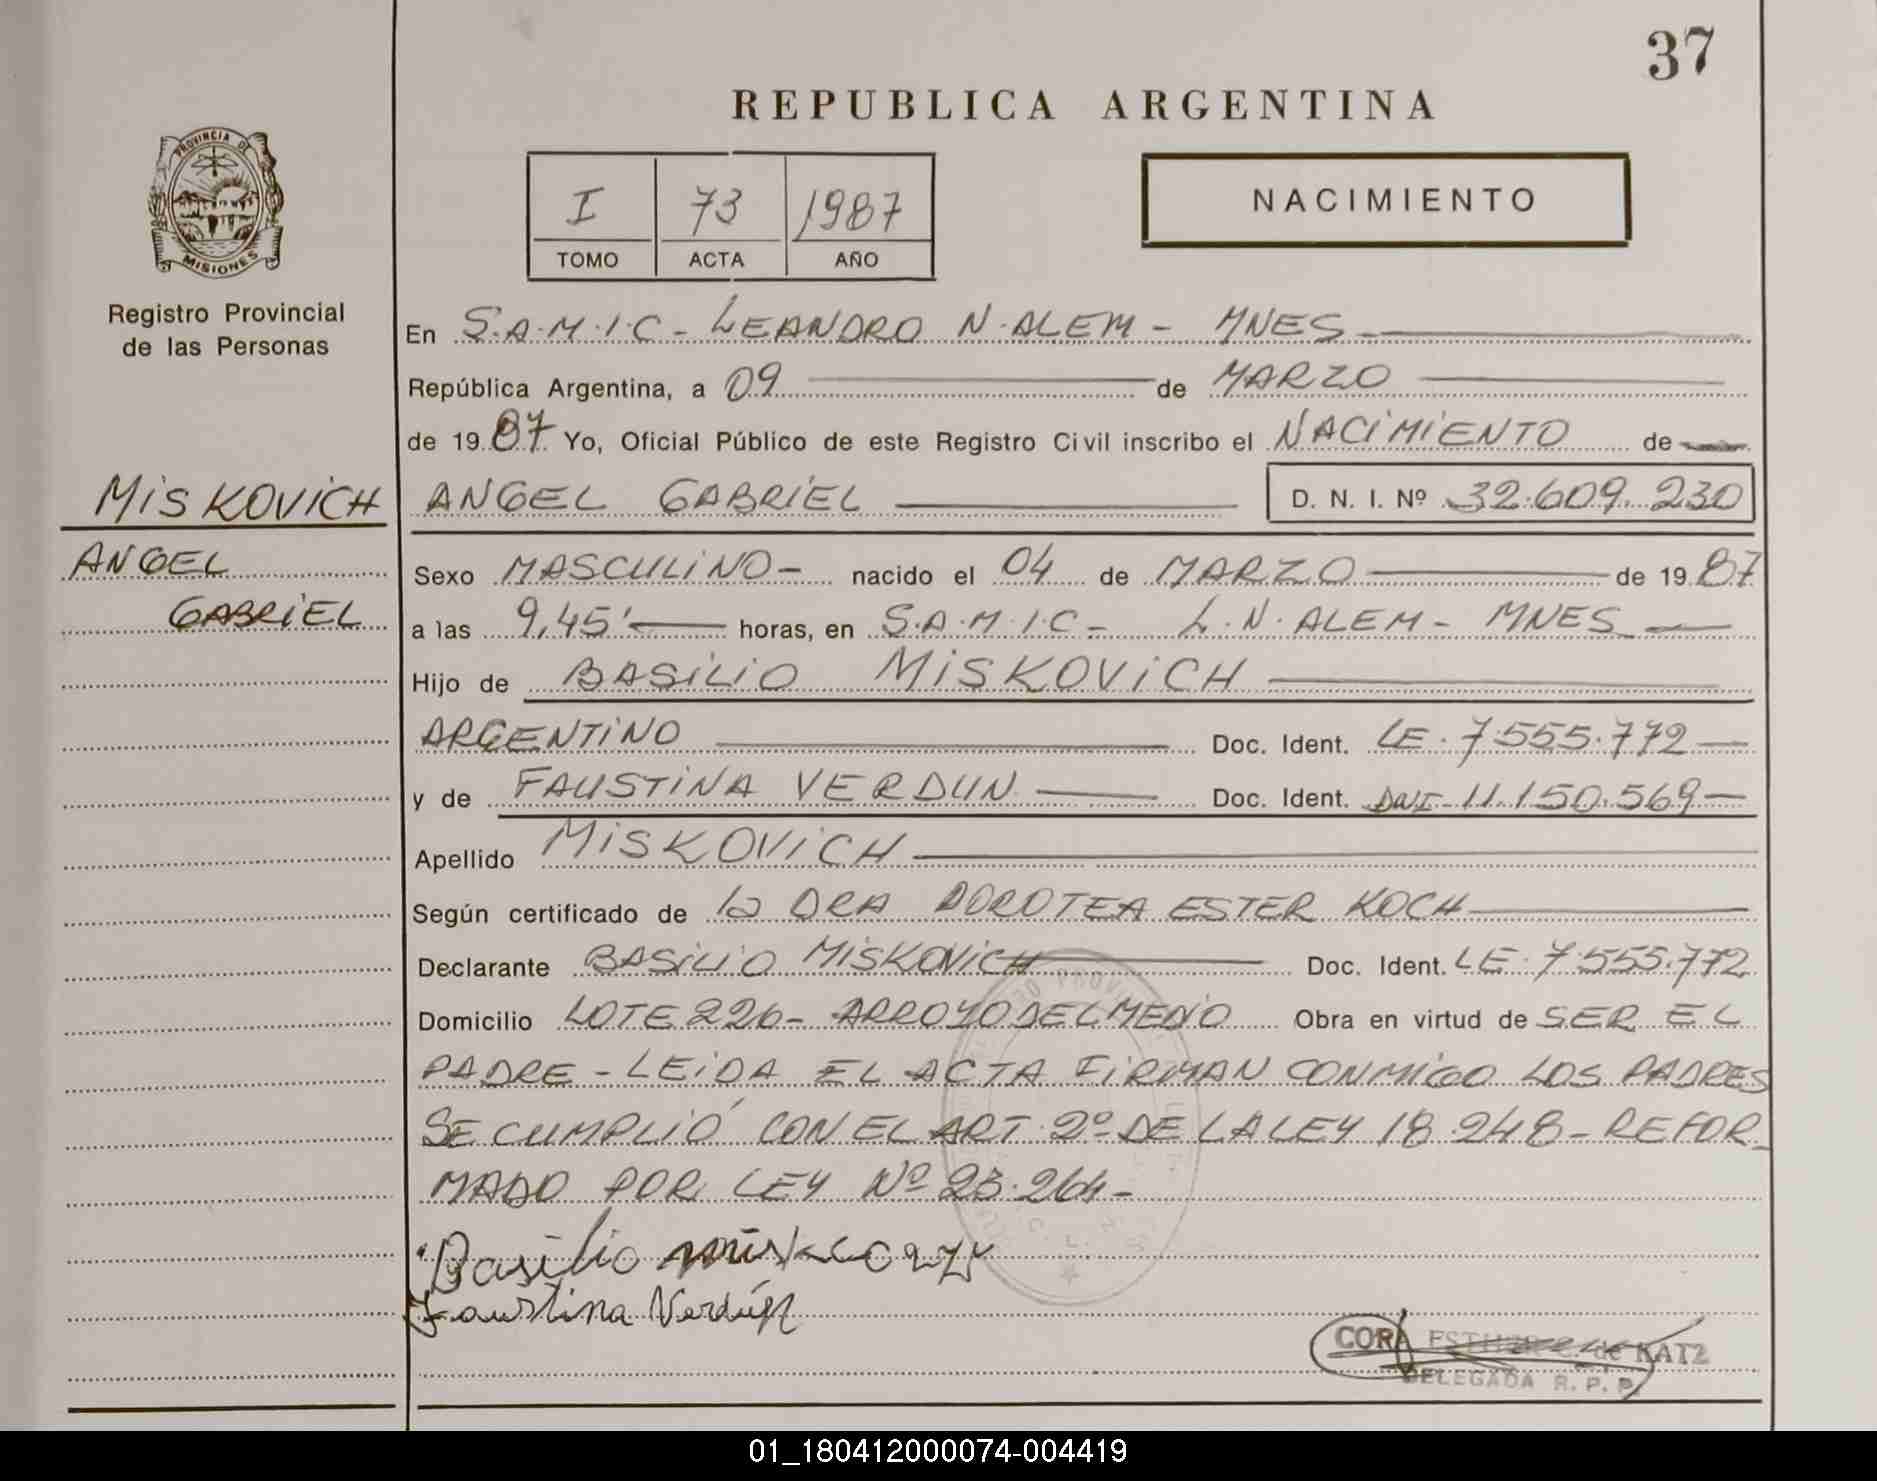 37
REPUBLICA ARGENTINA
PROVINCIA DE
MISIONES
Registro Provincial
de las Personas
I 73 1987
TOMO ACTA AÑO
NACIMIENTO
En S.A.M.I.C - LEANDRO N. ALEM - MNES
República Argentina, a 09 de MARZO
de 1987 Yo, Oficial Público de este Registro Civil inscribo el NACIMIENTO de
MISKOVICH
ANGEL
GABRIEL
ANGEL GABRIEL D. N. I. Nº 32.609.230
Sexo MASCULINO - nacido el 04 de MARZO de 1987
a las 9,45' horas, en S.A.M.I.C - L.N. ALEM - MNES
Hijo de BASILIO MISKOVICH
ARGENTINO Doc. Ident. LE. 7.555.772
y de FAUSTINA VERDUN Doc. Ident. DNI - 11.150.569
Apellido MISKOVICH
Según certificado de la DRA DOROTEA ESTER KOCH
Declarante BASILIO MISKOVICH Doc. Ident. LE. 7.555.772
Domicilio LOTE 226 - ARROYO DEL MEDIO Obra en virtud de SER EL
PADRE - LEIDA EL ACTA FIRMAN CONMIGO LOS PADRES
SE CUMPLIÓ CON EL ART. 2º DE LA LEY 18.248 - REFOR
MADO POR LEY Nº 23.264 -
Basilio
Faustina Verdún
CORA ESTHER de KATZ
DELEGADA R. P. P.
01_180412000074-004419